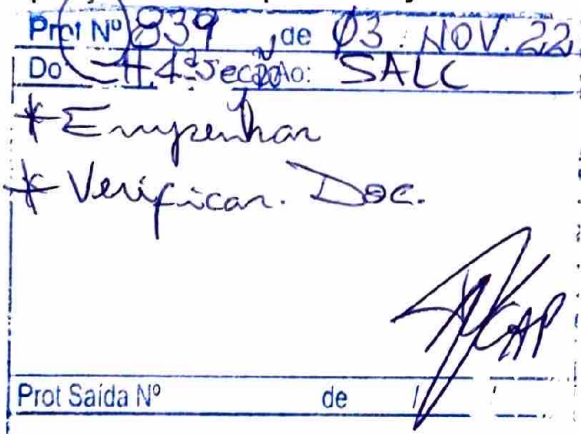 Prot Nº 839 de 03. NOV. 22
Do 4ª Secção Ao: SALC
* Empenhar
* Verificar. Doc.
CAP
Prot Saída Nº de / /